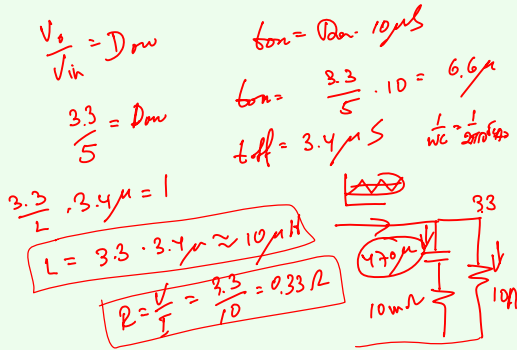 Vo/Vin = Don
3.3/5 = Don
ton = Don · 10μS
ton = 3.3/5 · 10 = 6.6μ
toff = 3.4μS
3.3/L · 3.4μ = 1
L = 3.3 · 3.4μ ≈ 10μH
R = V/I = 3.3/10 = 0.33Ω
1/wc =
3.3
470μ
10mΩ